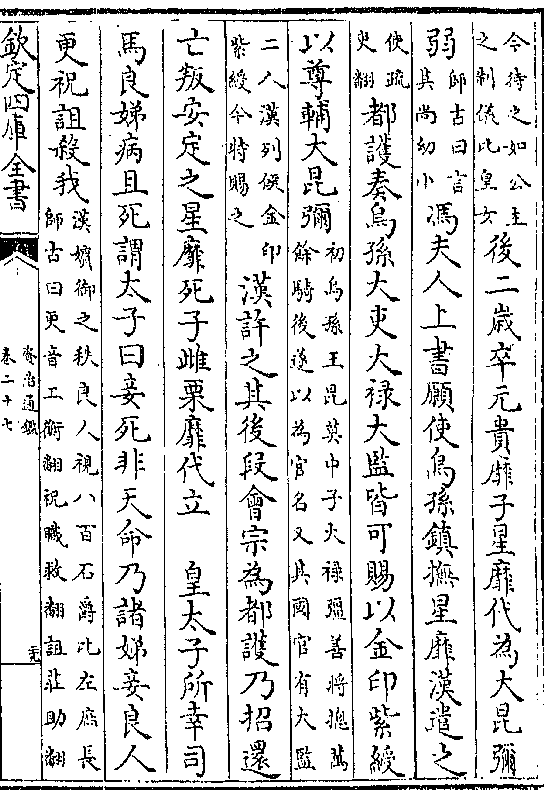 今待之如公主
之制儀比皇女
後二歲卒元貴靡子星靡代為大昆彌
弱
師古曰言
其尚幼小
馮夫人上書願使烏孫鎮撫星靡漢遣之
使疏
吏翻
都護奏烏孫大吏大祿大監皆可賜以金印紫綬
以尊輔大昆彌
初烏孫王昆莫中子大祿彊善將揔萬
餘騎後遂以為官名又其國官有大監
二人漢列侯金印
紫綬今特賜之
漢許之其後段會宗為都護乃招還
亡叛安定之星靡死子雌栗靡代立　皇太子所幸司
馬良娣病且死謂太子曰妾死非天命乃諸娣妾良人
更祝詛殺我
漢嬪御之秩良人視八百石爵比左庶長
師古曰更音工衡翻祝職救翻詛莊助翻
欽定四庫全書
資治通鑑
卷二十七